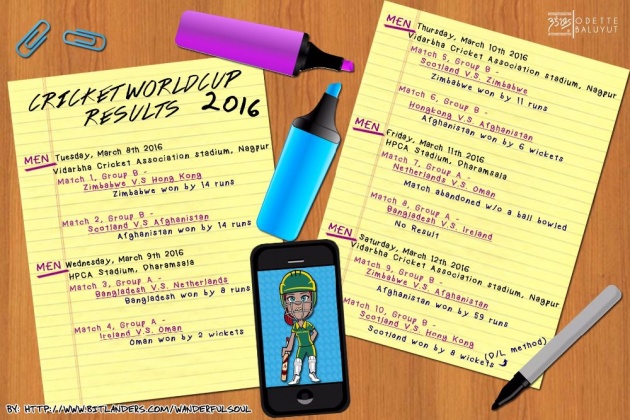 CRICKET WORLD CUP
RESULTS 2016
MEN Tuesday, March 8th 2016
Vidarbha Cricket Association stadium, Nagpur
Match 1, Group B -
Zimbabwe V.S Hong Kong
Zimbabwe won by 14 runs
Match 2, Group B -
Scotland V.S Afghanistan
Afghanistan won by 14 runs
MEN Wednesday, March 9th 2016
HPCA Stadium, Dharamsala
Match 3, Group A -
Bangladesh V.S Netherlands
Bangladesh won by 8 runs
Match 4, Group A -
Ireland V.S Oman
Oman won by 2 wickets
MEN Thursday, March 10th 2016
Vidarbha Cricket Association stadium, Nagpur
Match 5, Group B -
Scotland V.S Zimbabwe
Zimbabwe won by 11 runs
Match 6, Group B -
Hongkong V.S Afghanistan
Afghanistan won by 6 wickets
MEN Friday, March 11th 2016
HPCA Stadium, Dharamsala
Match 7, Group A -
Netherlands V.S Oman
Match abandoned w/o a ball bowled
Match 8, Group A -
Bangladesh V.S Ireland
No Result
MEN Saturday, March 12th 2016
Vidarbha Cricket Association stadium, Nagpur
Match 9, Group B -
Zimbabwe V.S Afghanistan
Afghanistan won by 59 runs
Match 10, Group B -
Scotland V.S Hong Kong
Scotland won by 8 wickets (D/L method)
ODETTE
BALUYUT
BY: HTTP://WWW.BITLANDERS.COM/WANDERFULSOUL